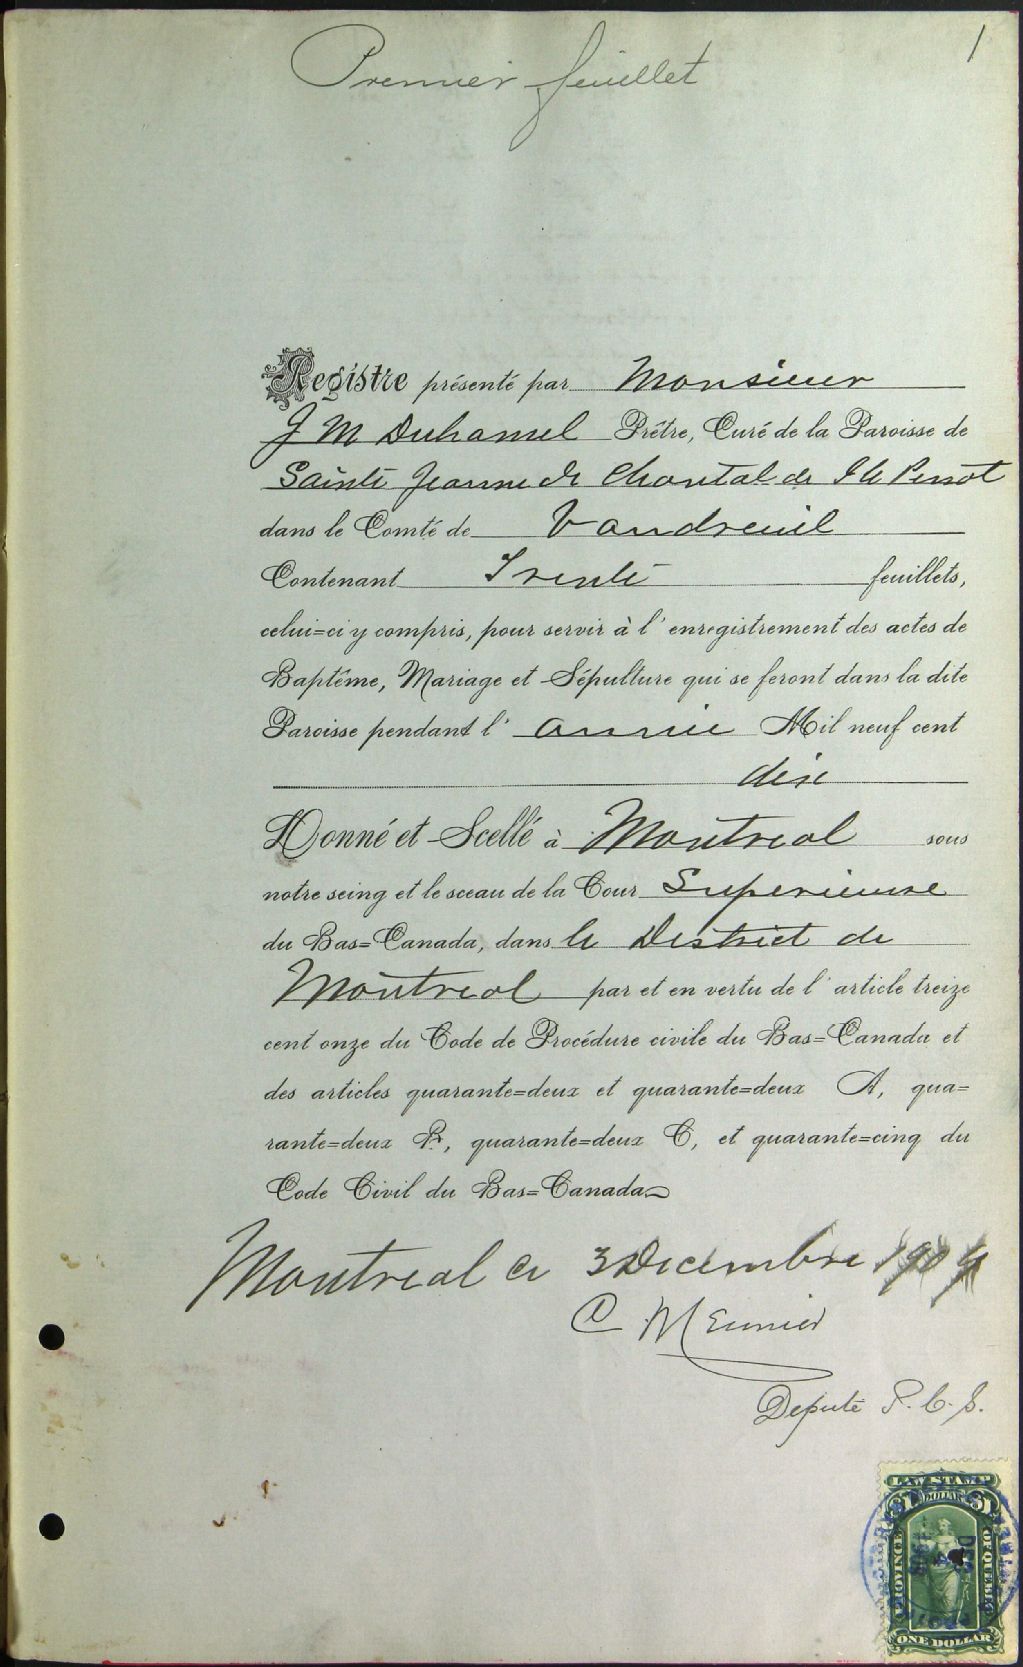 1
Premier feuillet
Registre présenté par Monsieur
J M Duhamel Prêtre, Curé de la Paroisse de
Sainte Jeanne de Chantal de Ile Perrot
dans le Comté de Vaudreuil
Contenant Trente feuillets,
celui=ci y compris, pour servir à l'enregistrement des actes de
Baptême, Mariage et Sépulture qui se feront dans la dite
Paroisse pendant l'annee Mil neuf cent
dix
Donné et Scellé à Montreal sous
notre seing et le sceau de la Cour Superieure
du Bas=Canada, dans le District de
Montreal par et en vertu de l'article treize
cent onze du Code de Procédure civile du Bas=Canada et
des articles quarante=deux et quarante=deux A, qua=
rante=deux B, quarante=deux C, et quarante=cinq du
Code Civil du Bas=Canada
Montreal ce 3 Decembre 1909
C Meunier
Deputé P. C. S.
LAW STAMP
$1 DOLLAR $1
PROVINCE OF QUEBEC
DEC
ONE DOLLAR